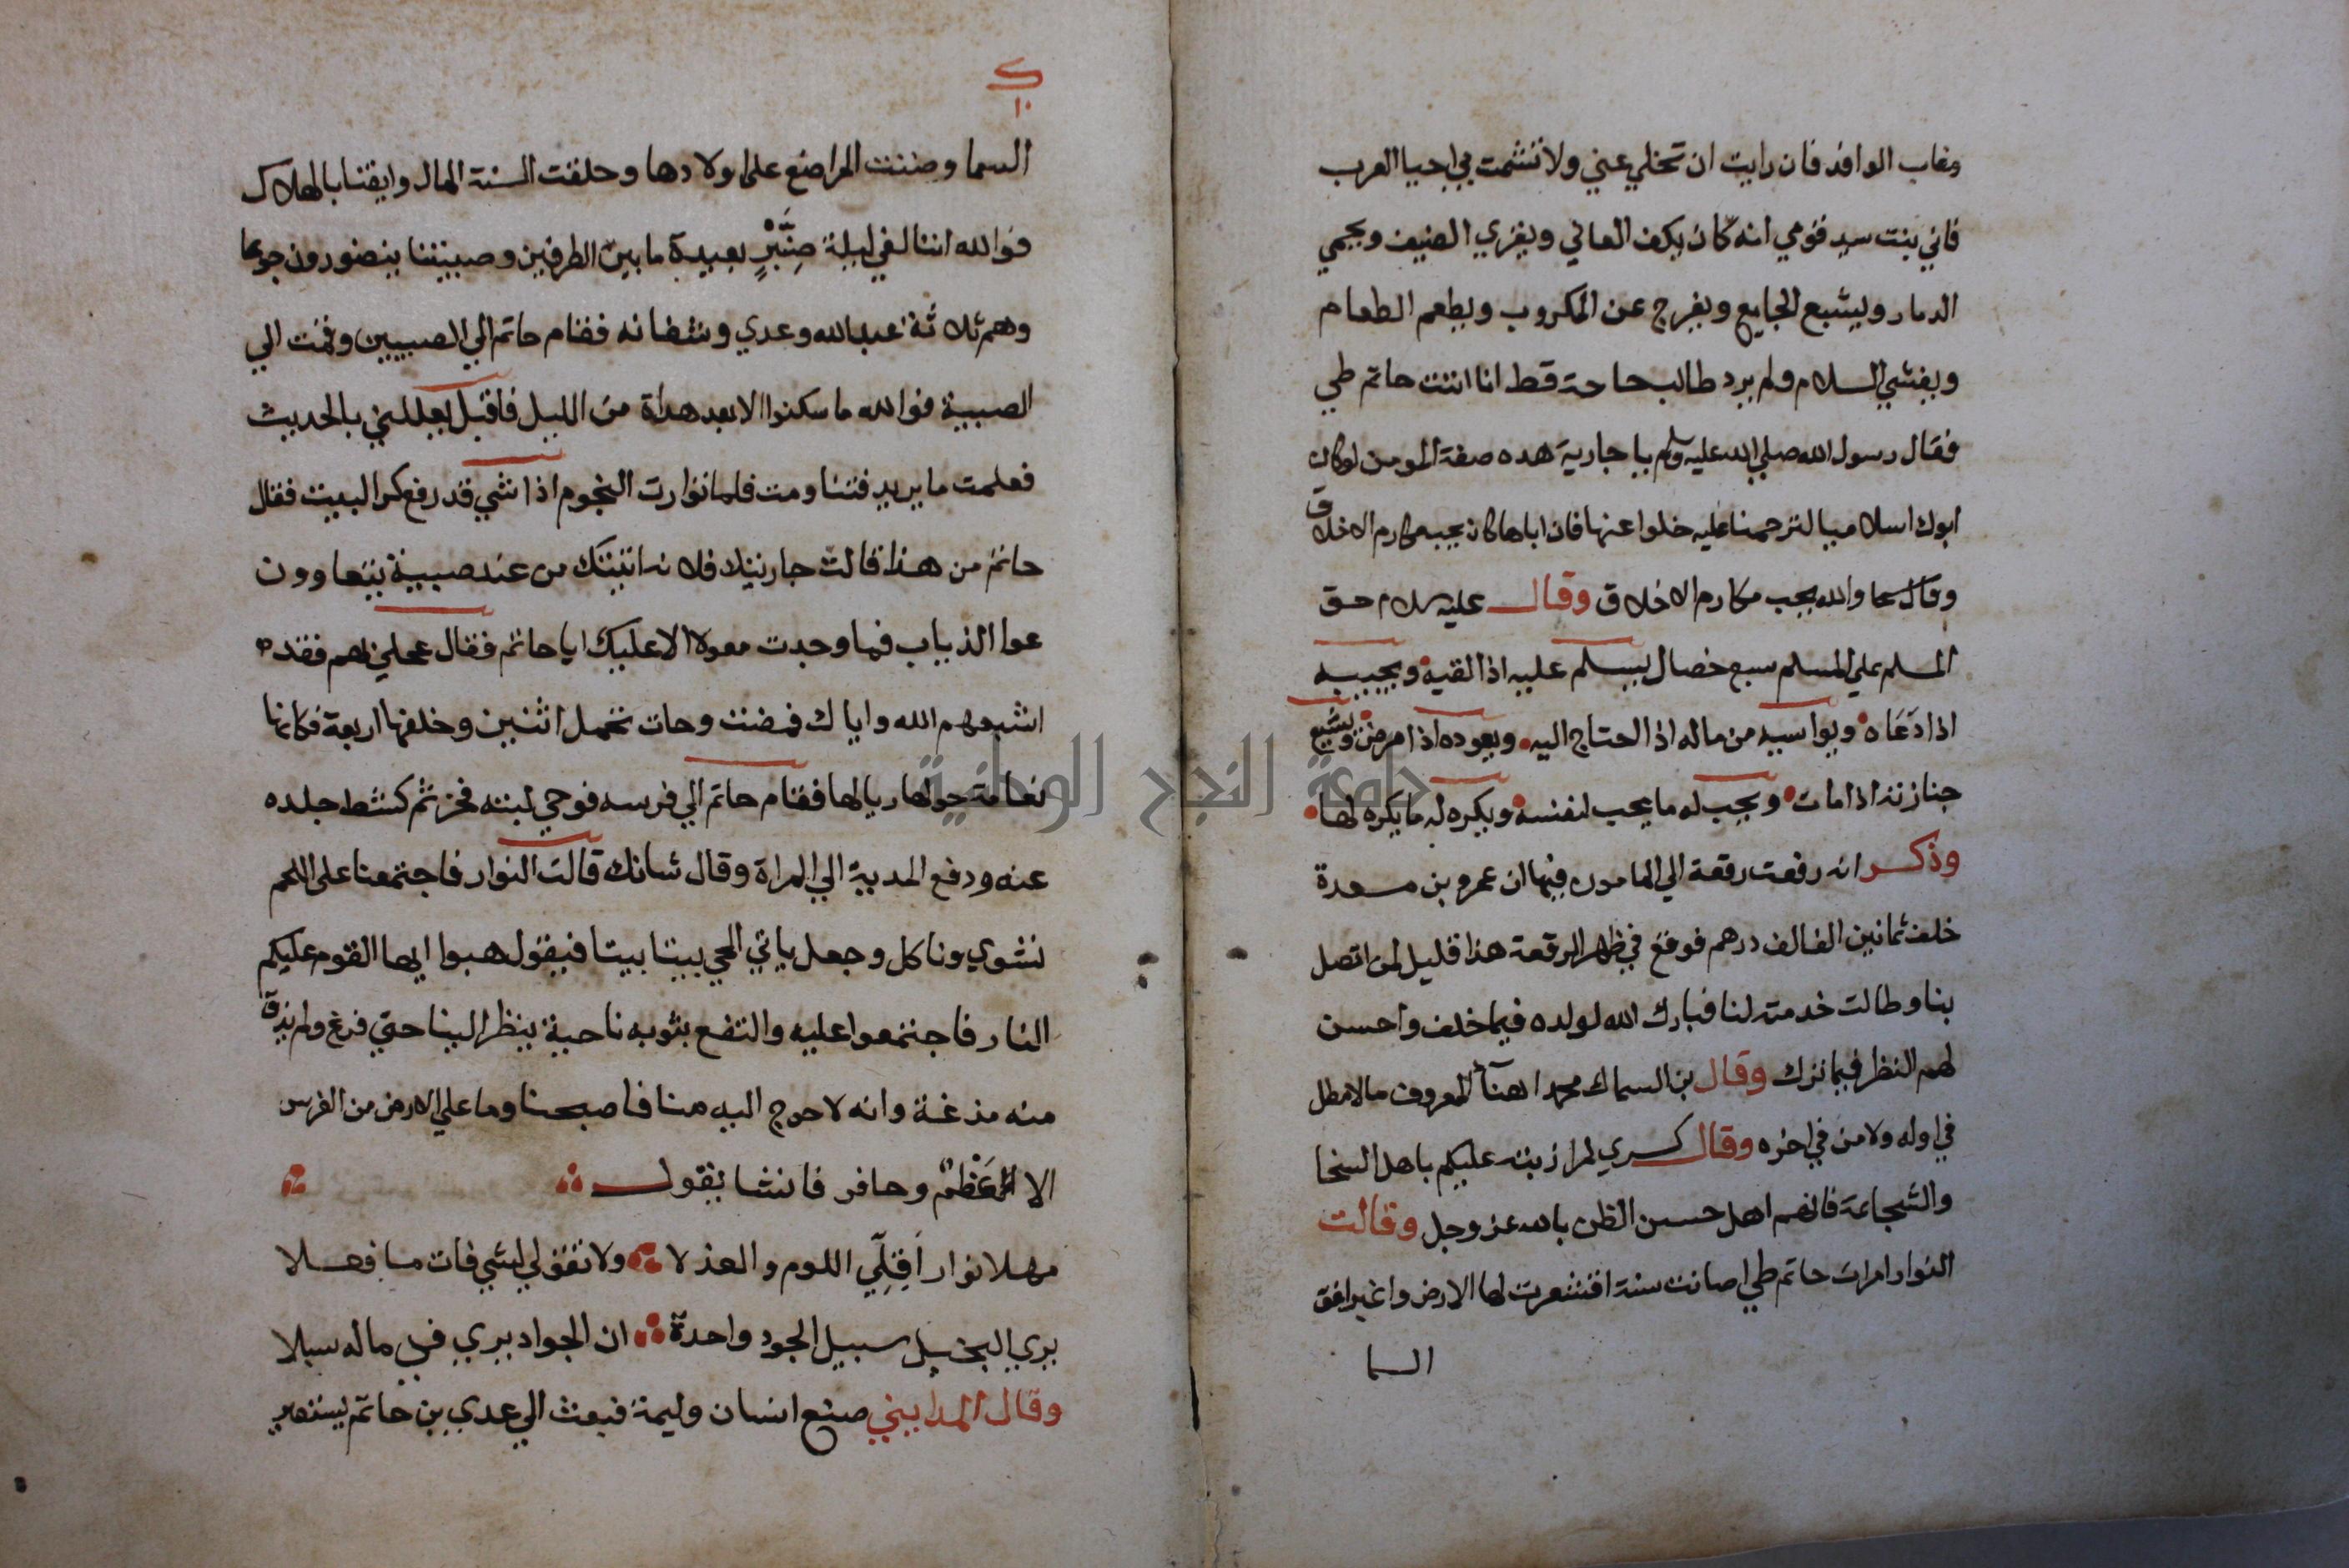 وغاب الوافد فان رايت ان تخلي عني ولا تشمت بي احيا العرب
فاني بنت سيد قومي انه كان يكف العاني ويقري الضيف ويحمي
الدمار ويشبع الجايع ويفرج عن المكروب ويطعم الطعام
ويفشي السلام ولم يرد طالب حاجة قط انا ابنت حاتم طي
فقال رسول الله صلي الله عليه وسلم يا جارية هده صفة المومن لو كان
ابوك اسلاميا لترحمنا عليه خلوا عنها فان اباها كان يحب مكارم الاخلاق
وقال والله يحب مكارم الاخلاق وقال عليه السلام حق
المسلم علي المسلم سبع خصال يسلم عليه اذا لقيه ويجيبه
اذا دَعَاه ويواسيه من ماله اذا احتاج اليه ويعوده اذا مرض ويشيع
جنازته اذا مات ويحب له ما يحب لنفسه ويكره له ما يكره لها
وذكر انه رفعت رقعة الي المامون فيها ان عمرو بن مسعدة
خلف ثمانين الف الف درهم فوقع في ظهر الرقعة هذا قليل لمن اتصل
بنا وطالت خدمته لنا فبارك الله لولده فيما خلف واحسن
لهم النظر فيما ترك وقال بن السماك محمد اهنأ المعروف مالا مطل
في اوله ولا من في اخره وقال كسري لمرازبته عليكم باهل السخا
والشجاعة فانهم اهل حسن الظن بالله عز وجل وقالت
النوار امرات حاتم طي اصابت سنة اقشعرت لها الارض واغبر افق
السما
السما وضنت المراضع علي اولادها وحلقت السنة المال وايقنا بالهلاك
فوالله اننا لفي ليلة صِنَّبْرٍ بعيدة ما بين الطرفين وصبيتنا يتضورون جوعا
وهم ثلاثة عبد الله وعدي وسفانه فقام حاتم الي الصبيين وقمت الي
الصبية فوالله ما سكنوا الا بعد هداة من الليل فاقبل يعللني بالحديث
فعلمت ما يريد فتناومت فلما توارت النجوم اذا شي قد رفع كسر البيت فقال
حاتم من هذا قالت جارتيك فلانه اتيتك من عند صبية يتعاوون
عوا الذياب فما وجدت معولا الا عليك ايا حاتم فقال عجليهم فقد
اشبعهم الله واياك فمضت وجات تحمل اثنين وخلفها اربعة فكانها
نعامة حولها ريالها فقام حاتم الي فرسه فوجي لبته فخر ثم كشط جلده
عنه ودفع المدية الي المراة وقال شانك قالت النوار فاجتمعنا علي اللحم
نشوي وناكل وجعل ياتي الحي بيتا بيتا فيقول هبوا ايها القوم عليكم
النار فاجتمعوا عليه والتفع بثوبه ناحية ينظر الينا حتي فرغ ولم يذق
منه مذغة وانه لاحوج اليه منا فاصبحنا وما علي الارض من الفرس
الا عَظْمٌ وحافر فانشا يقول
مهلا نوار اَقِلِّي اللوم والعذلا ولا تقولي لشي فات ما فعلا
يري البخيل سبيل الجود واحدة ان الجواد يري في ماله سبلا
وقال المدايني صنع انسان وليمة فبعث الي عدي بن حاتم يستعير
جامعة النجاح الوطنية